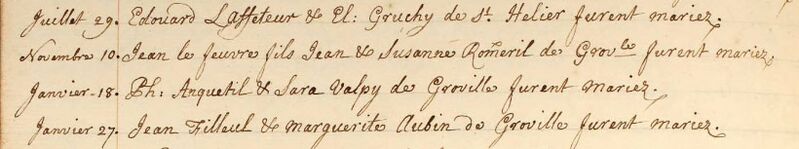 Juillet 29. Edouard Laffeteur & El: Gruchy de St. Helier furent mariez.
Novembre 10. Jean le feuvre fils Jean & Susanne Romeril de Grovle furent mariez.
Janvier-18. Ph: Anquetil & Sara Valpy de Groville furent mariez.
Janvier 27. Jean Filleul & Marguerite Aubin de Groville furent mariez.